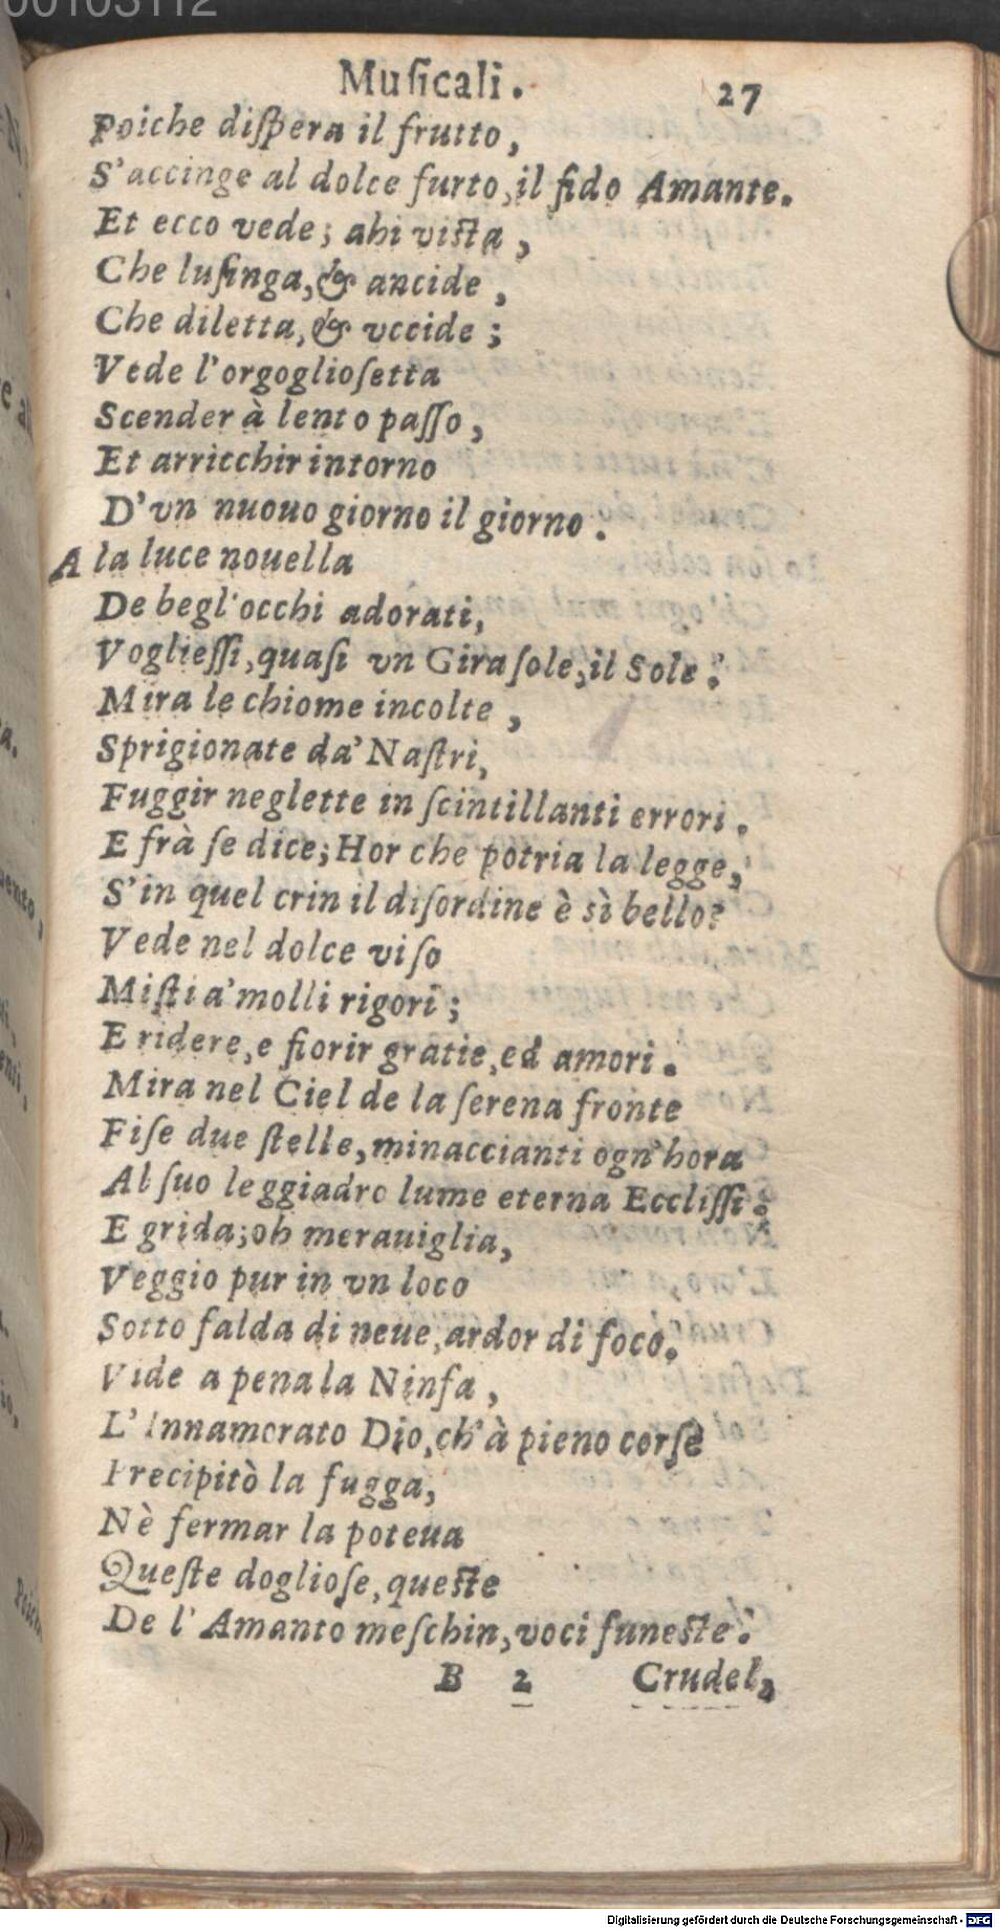 00103112
Muſicali. 27
Poiche diſpera il frutto,
S'accinge al dolce furto, il fido Amante.
Et ecco vede; ahi viſta,
Che luſinga, & ancide,
Che diletta, & vccide;
Vede l'orgoglioſetta
Scender à lento paſſo,
Et arricchir intorno
D'vn nuouo giorno il giorno.
A la luce nouella
De begl'occhi adorati,
Voglieſſi, quaſi vn Giraſole, il Sole:
Mira le chiome incolte,
Sprigionate da' Naſtri,
Fuggir neglette in ſcintillanti errori.
E frà ſe dice; Hor che potria la legge,
S'in quel crin il diſordine è sì bello?
Vede nel dolce viſo
Miſti a' molli rigori;
E ridere, e fiorir gratie, ed amori.
Mira nel Ciel de la ſerena fronte
Fiſe due ſtelle, minaccianti ogn'hora
Al ſuo leggiadro lume eterna Eccliſſi:
E grida; oh merauiglia,
Veggio pur in vn loco
Sotto falda di neue, ardor di foco.
Vide a pena la Ninfa,
L'Innamorato Dio, ch'à pieno corſe
Precipitò la fugga,
Nè fermar la poteua
Queſte doglioſe, queſte
De l'Amanto meſchin, voci funeſte:
B 2 Crudel,
Digitalisierung gefördert durch die Deutsche Forschungsgemeinschaft - DFG